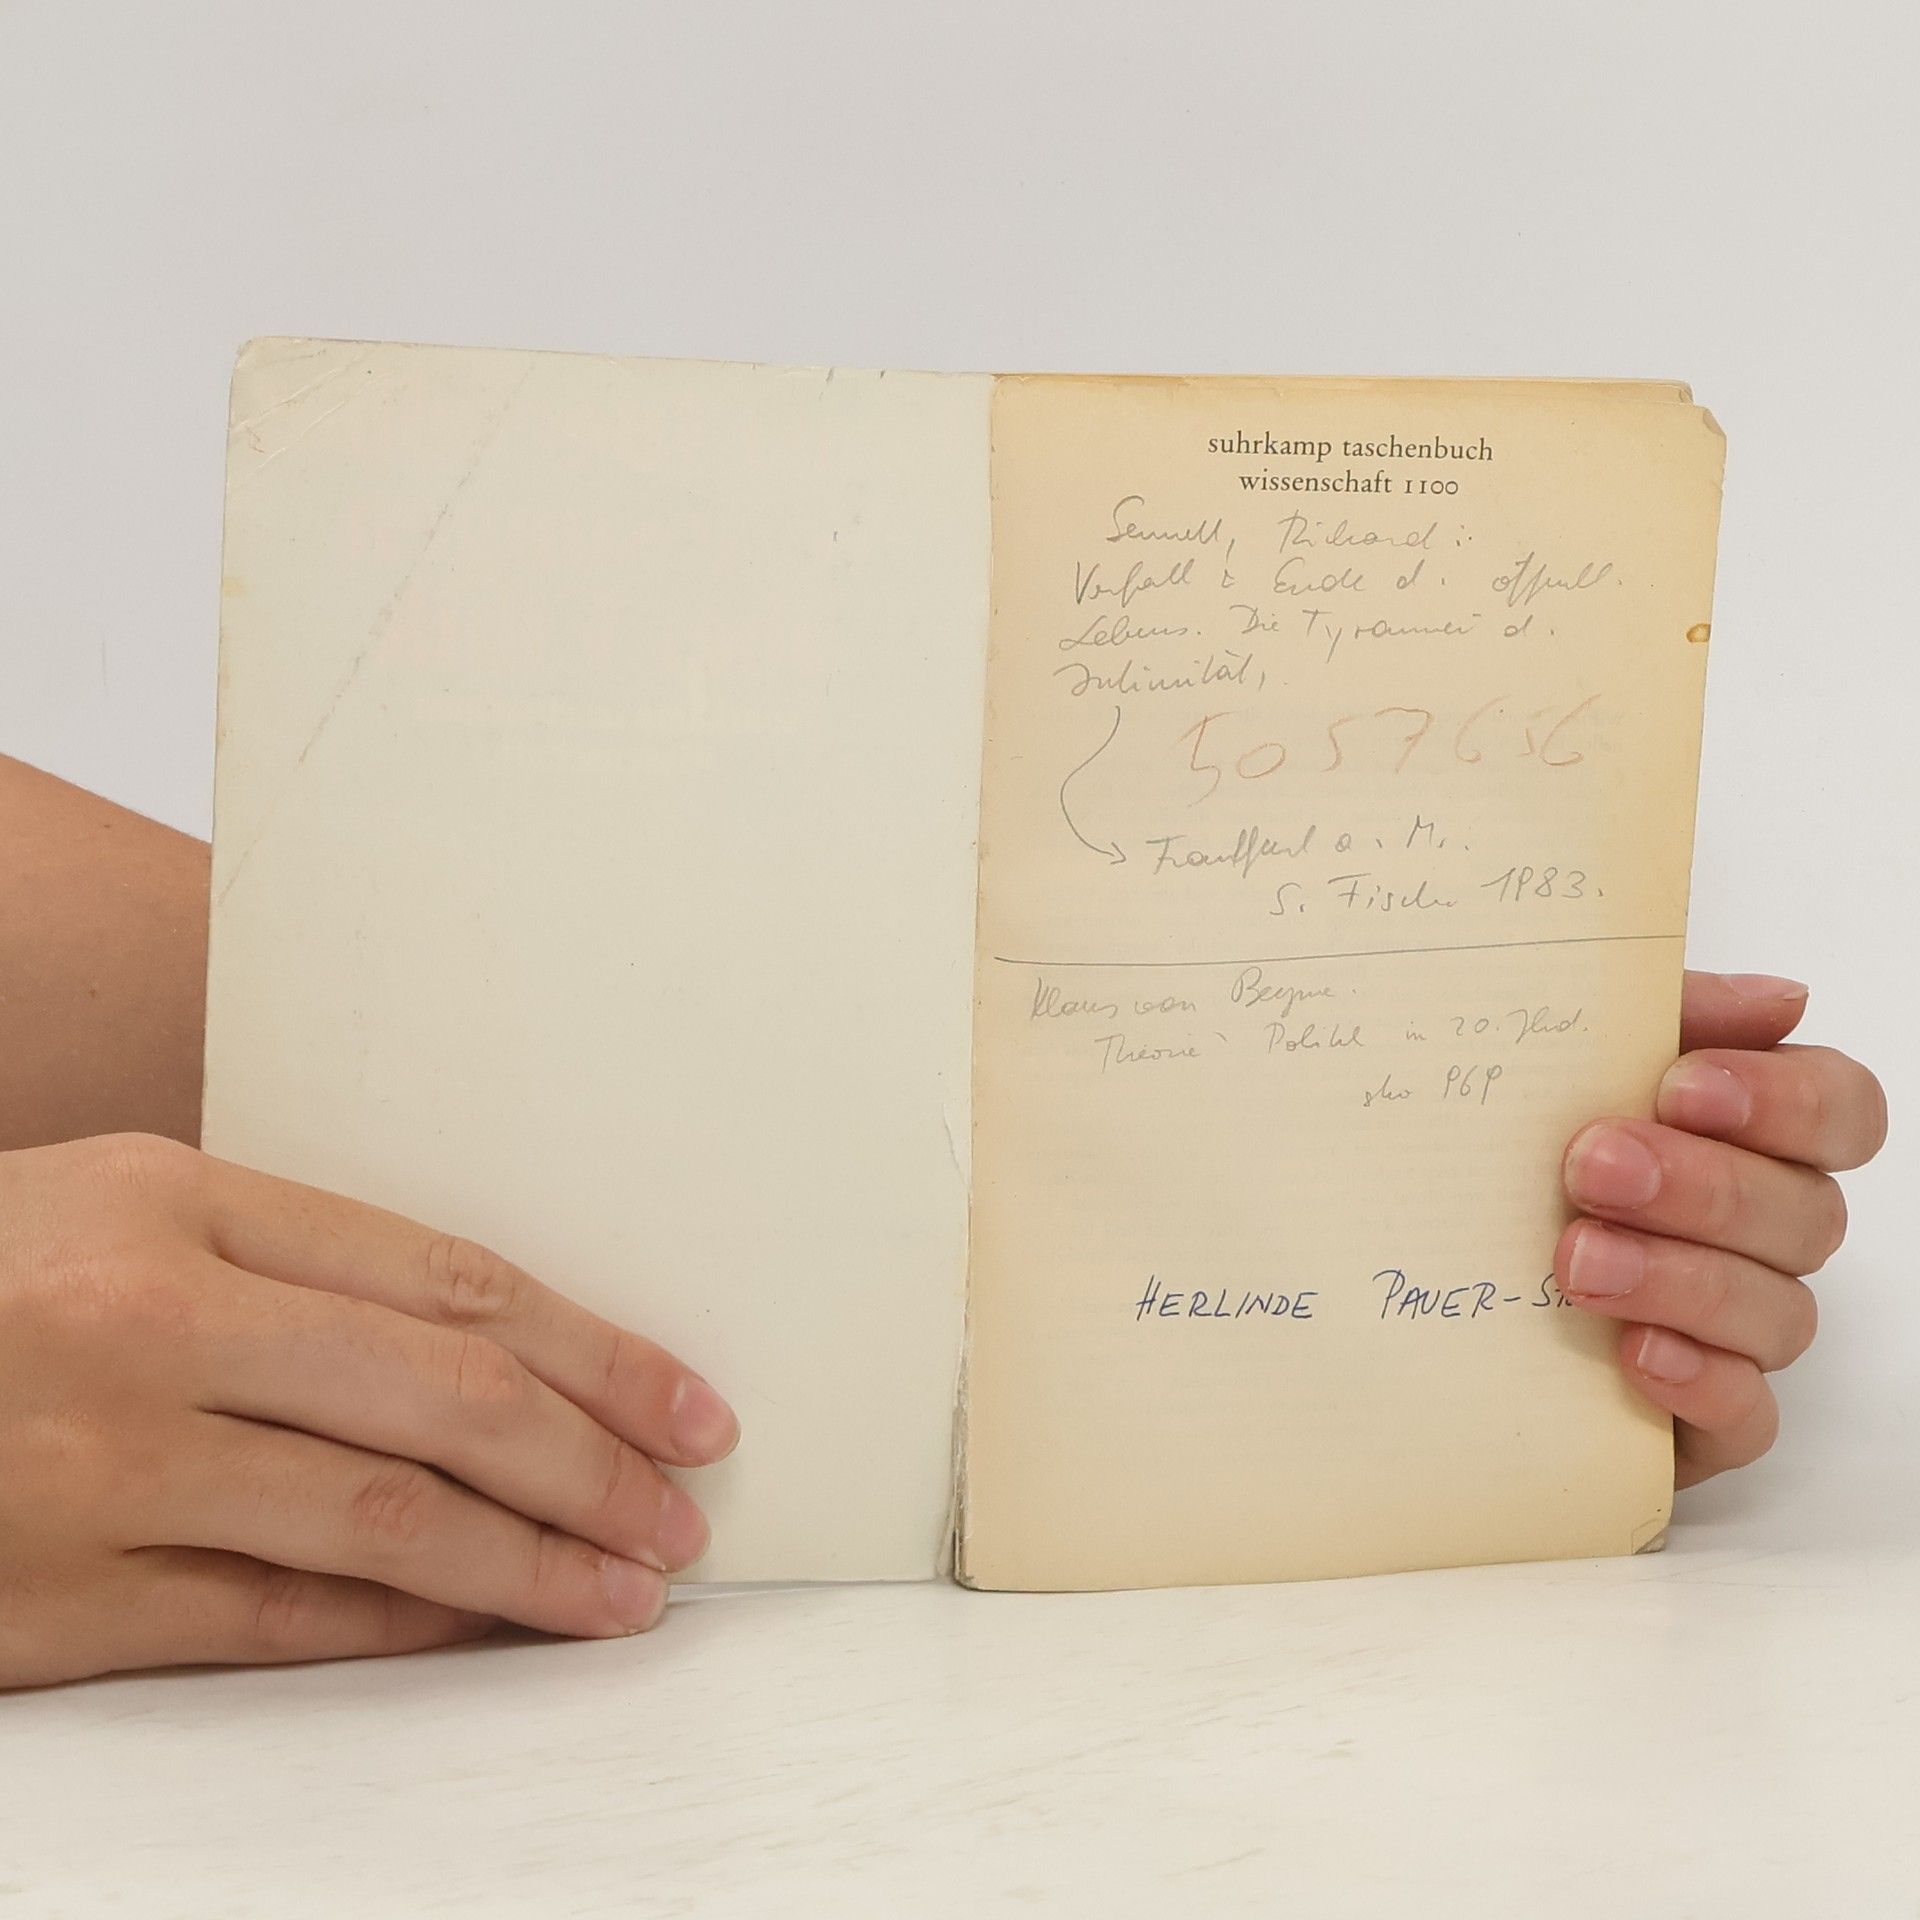 suhrkamp taschenbuch
wissenschaft 1100
Sennett, Richard:
Verfall & Ende d. öffentl.
Lebens. Die Tyrannei d.
Intimität,
5057656
Frankfurt a. M.:
S. Fischer 1983.
Klaus von Beyme.
Theorie Politik im 20. Jhd.
stw 969
HERLINDE PAUER-ST